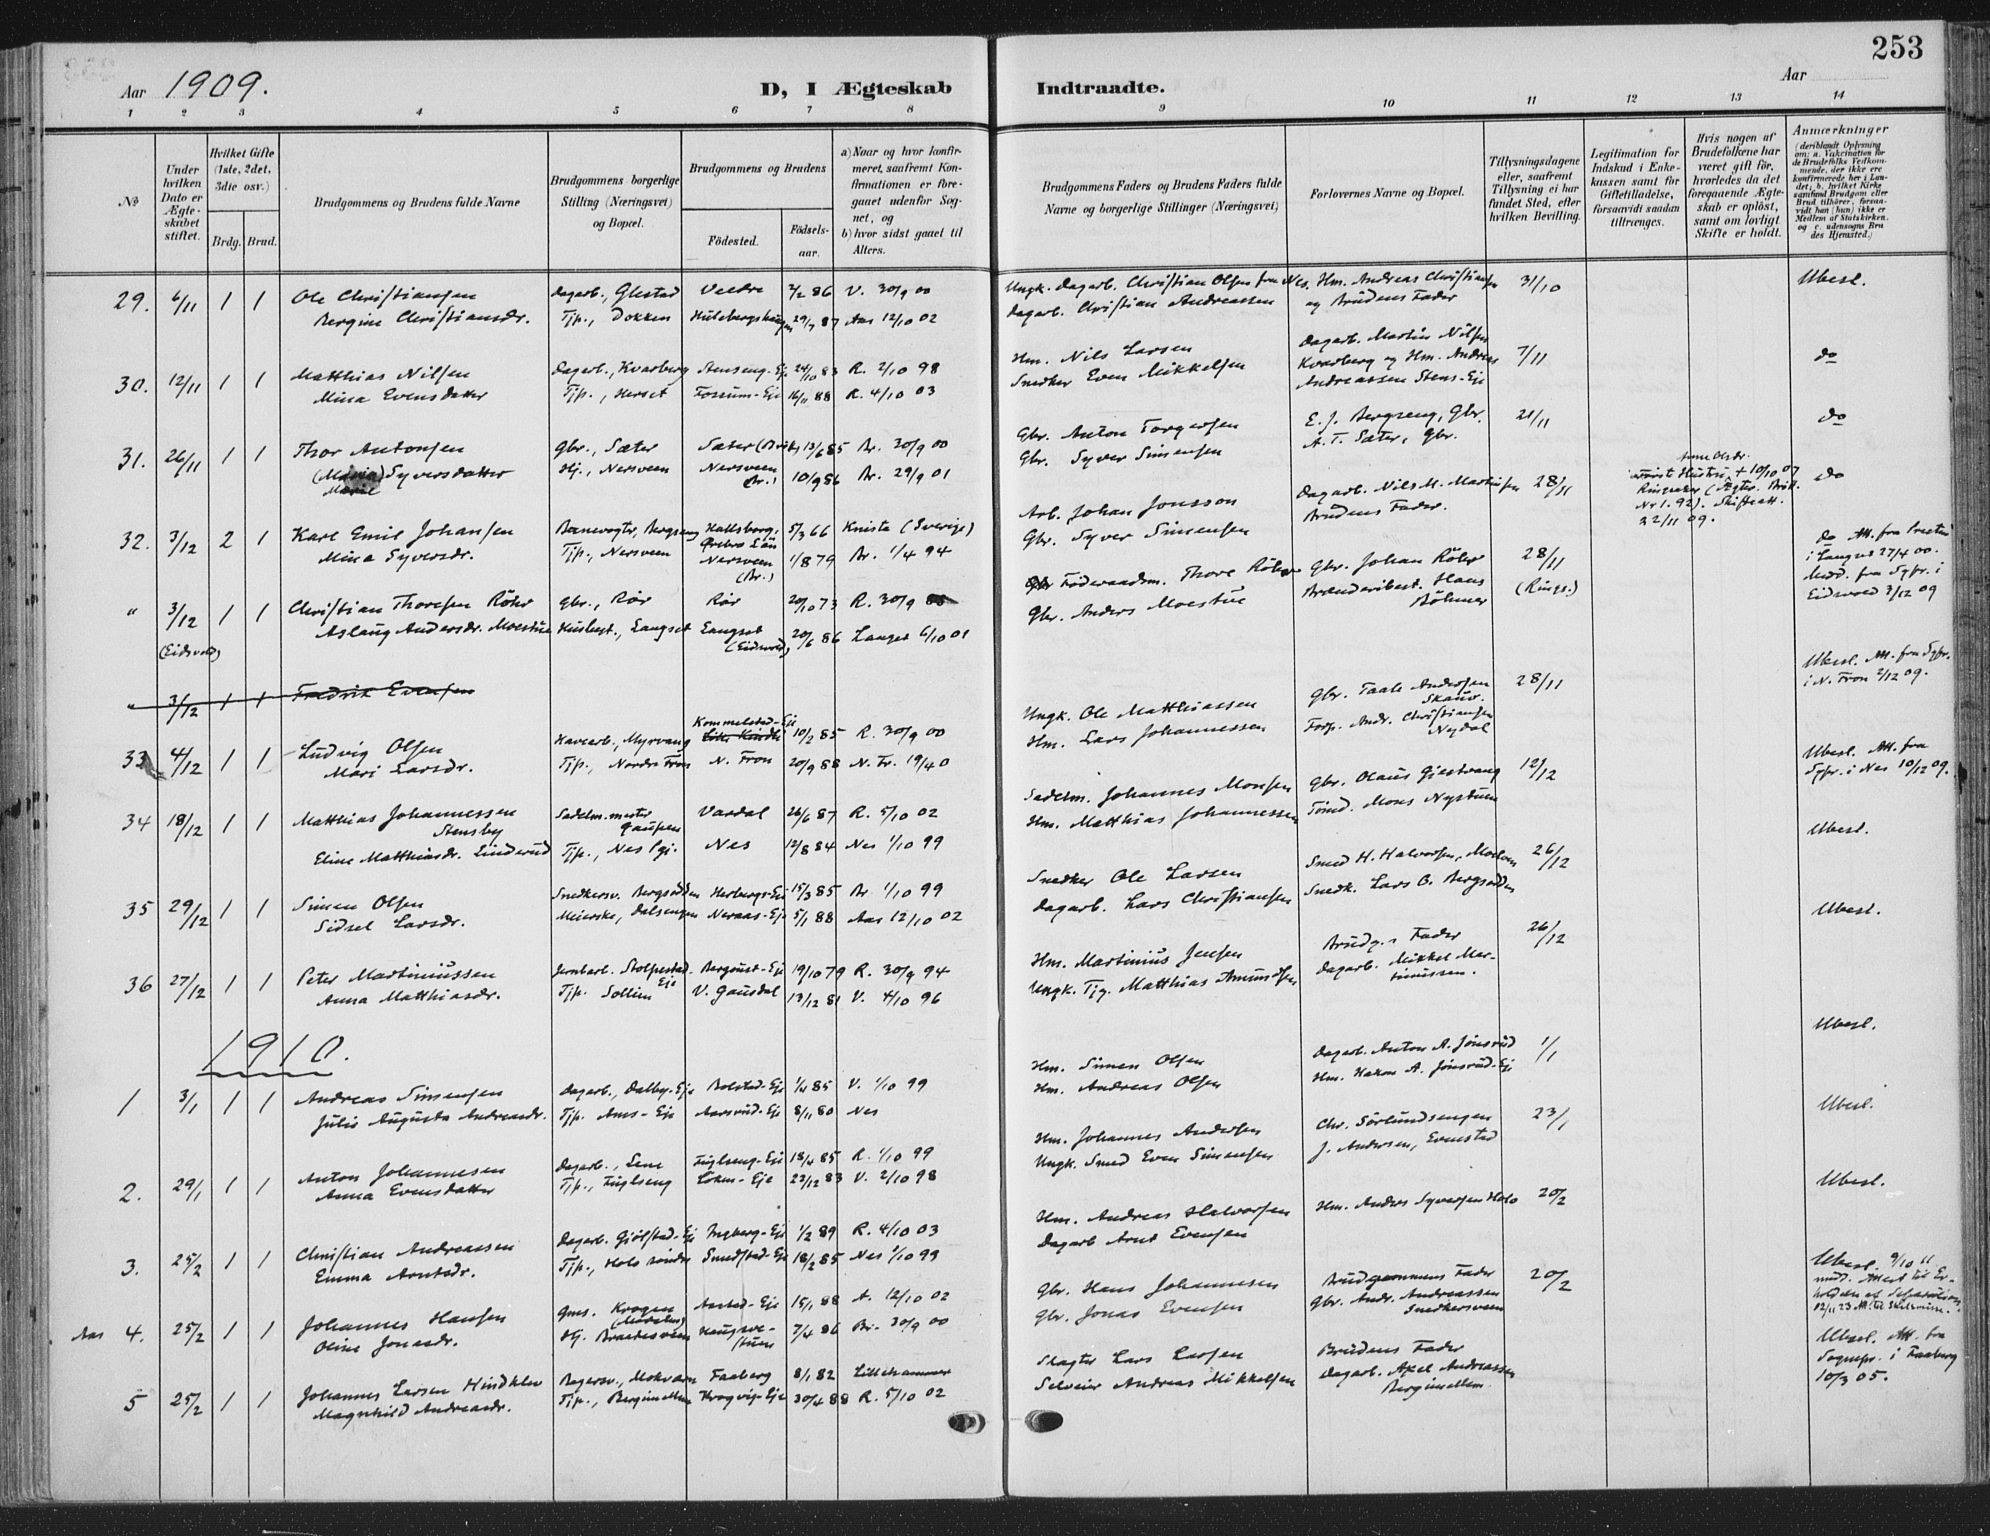 253
Aar 1909.
D, I Ægteskab Indtraadte.
Aar
1 2 3 4 5 6 7 8 9 10 11 12 13 14
No
Under hvilken Dato er Ægteskabet stiftet.
Hvilket Gifte (1ste, 2det, 3die osv.)
Brdg. Brud.
Brudgommens og Brudens fulde Navne
Brudgommens borgerlige Stilling (Næringsvei) og Bopæl.
Brudgommens og Brudens
Födested.
Födselsaar.
a) Naar og hvor konfirmeret, saafremt Konfirmationen er foregaaet udenfor Sognet, og
b) hvor sidst gaaet til Alters.
Brudgommens Faders og Brudens Faders fulde Navne og borgerlige Stillinger (Næringsvei)
Forlovernes Navne og Bopæl.
Tillysningsdagene eller, saafremt Tillysning ei har fundet Sted, efter hvilken Bevilling.
Legitimation for Indskud i Enkekassen samt for Giftetilladelse, forsaavidt saadan tiltrænges.
Hvis nogen af Brudefolkene har været gift för, hvorledes da det foregaaende Ægteskab er oplöst, samt om lovligt Skifte er holdt.
Anmærkninger
(deriblandt Oplysning om: a. Vakcination for de Brudefolks Vedkommende, der ikke ere konfirmerede her i Landet; b. hvilket Kirkesamfund Brudgom eller Brud tilhörer, forsaavidt han (hun) ikke er Medlem af Statskirken, og c. udensogns Brudes Hjemsted.)
29. 6/11 1 1 Ole Christiansen Dagarb., Glestad Veldre 7/2 86 V. 30/9 00 Ungk. Dagarb. Christian Olsen fra Nes. Hm. Andreas Christiansen 31/10 Ubesl.
Bergine Christiansdr. Tjp., Dokken 29/7 87 Aas 12/10 02 Dagarb. Christian Andreassen og Brudens Fader
30. 12/11 1 1 Matthias Nilsen Dagarb., Kvarberg Stenseng-Eje 24/10 83 R. 2/10 98 Hm. Nils Larsen Dagarb. Martin Nilsen 7/11 do
Mina Evensdatter Tjp., Herset Fossum-Eje 16/11 88 R. 4/10 03 Snedker Even Mikkelsen Kvarberg og Hm. Andreas
Andreassen Stens-Eje
31. 26/11 1 1 Thor Antonsen Gbr., Sæter Sæter 13/6 85 Br. 30/9 00 Gbr. Anton Torgersen E. J. Bergseng, Gbr. 21/11 do
(Maria) Syversdatter Hj., Nersveen Nersveen (Br.) 10/9 86 Br. 29/9 01 Gbr. Syver Simensen A. T. Sæter, Gbr.
Marie
32. 3/12 2 1 Karl Emil Johansen Banevogter, Bergseng Hallsberg, Örebro Län 5/3 66 Knista (Sverige) Arb. Johan Jonsson Dagarb. Nils M. Martinsen 28/11 do
Mina Syversdr. Tjp., Nersveen Nersveen (Br.) 1/8 79 Br. 1/4 94 Gbr. Syver Simensen Brudens Fader.
Förste Hustru + 10/10 07
Ringsaker
Nr 1. 92). Skifteatt.
22/11 09.
" 3/12 1 1 Christian Thoresen Röhr Gbr., Rör Rör 20/10 73 R. 30/9 Föderaadsm. Thore Röhr Gbr. Johan Röhr 28/11
(Eidsvold) Aslaug Andersdr. Moestue Husbest., Langset Langset (Eidsvold) 20/6 86 Langset 6/10 01 Gbr. Anders Moestue Brænderibest. Hans Böhmer (Rings.)
Att. fra
i Langset 27/4 00.
Medd. fra Sgpr. i
Eidsvold 3/12 09
" 3/12 1 1 Fredrik Evensen
33 4/12 1 1 Ludvig Olsen Havearb., Myrvang Kommelstad-Eje 10/2 85 R. 30/9 00 Ungk. Ole Matthiassen Gbr. Taale Andersen Skaur 28/11 Ubesl. Att. fra Sgpr. i N. Fron 2/12 09.
Mari Larsdr. Tjp., Nordre Fron N. Fron 20/9 88 N. Fr. 19/4 0 Hm. Lars Johannessen Forp. Andr. Christiansen Nydal
34 18/12 1 1 Matthias Johannessen Stensby Sadelm.mester Gaupen Vardal 26/6 87 R. 5/10 02 Sadelm. Johannes Monsen Gbr. Olaus Gjestvang 12/12 Ubesl. Att. fra Sgpr. i Nes 10/12 09.
Eline Matthiasdr. Linderud Tjp., Nes Pgj. Nes 12/8 84 Nes 1/10 99 Hm. Matthias Johannessen Tömd. Mons Nystuen
35 29/12 1 1 Simen Olsen Snedkersv. Bergsodden Herbergs-Eje 15/3 85 Br 1/10 99 Snedker Ole Larsen Smed H. Halvorsen, Moelven 26/12 Ubesl.
Sidsel Larsdr. Meierske, Dalsengen Neraas-Eje 5/1 88 Aas 12/10 02 Dagarb. Lars Christiansen Snedk. Lars O. Bergsodden
36 27/12 1 1 Peter Martiniussen Jernbarb. Stolpestad Eje Bergous-Eje 19/10 79 R. 30/9 94 Hm. Martinius Jensen Brudg.s Fader 26/12 Ubesl.
Anna Matthiasdr. Tjp. Sollien V. Gausdal 13/12 81 V. 4/10 96 Ungk. Tjg. Matthias Amundsen Dagarb. Mikkel Martinussen.
1910.
1 3/1 1 1 Andreas Simensen Dagarb., Dalby-Eje Bolstad-Eje 1/4 85 V. 1/10 99 Hm. Simen Olsen Dagarb. Anton A. Jönsrud 1/1 Ubesl.
Julie Augusta Andreasdr. Tjp. Ams-Eje Aarsrud-Eje 8/11 80 Nes Hm. Andreas Olsen Hm. Hakon A. Jönsrud-Eje
2. 29/1 1 1 Anton Johannesen Dagarb., Lene Fuglseng-Eje 18/4 85 R. 1/10 99 Hm. Johannes Andersen Chr. Sörlundsengen 23/1 Ubesl.
Anna Evensdatter Tjp., Fuglseng Löken-Eje 22/12 83 V. 2/10 98 Ungk. Smed Even Simensen J. Andersen, Evenstad
3. 25/2 1 1 Christian Andreassen Dagarb. Gjölstad-Eje Ingberg-Eje 1/2 89 R. 4/10 03 Hm. Andreas Halvorsen Hm. Anders Syversen Holo 20/2 Ubesl.
Emma Arntsdr. Tjp., Holo söndre Smedstad-Eje 18/2 85 Nes 1/10 99 Dagarb Arnt Evensen
Aas 4. 25/2 1 1 Johannes Hansen Gms. Krogen Aastad-Eje 15/1 88 A. 12/10 02 Gbr. Hans Johannesen Brudgommens Fader 20/2 Ubesl. 9/10 11
Oline Jonasdr. Hj. Braadesveen Haugsvestuen 7/4 86 Br. 30/9 00 Gbr. Jonas Evensen Gbr. Andr. Andreassen Snedkersveen
medd. Attest til Erholdelse af Separation.
5 25/2 1 1 Johannes Larsen Hindklev Bagersv., Mokvam Faaberg 8/1 82 Lillehammer Slagter Lars Larsen Brudens Fader Ubesl. Att. fra Sognepr. i Faaberg 10/3 05.
Magnhild Andreasdr. Tjp., Bergimellem Krogvig-Eje 30/4 88 R. 5/10 02 Selveier Andreas Mikkelsen Dagarb. Axel Andreassen Bergimellem